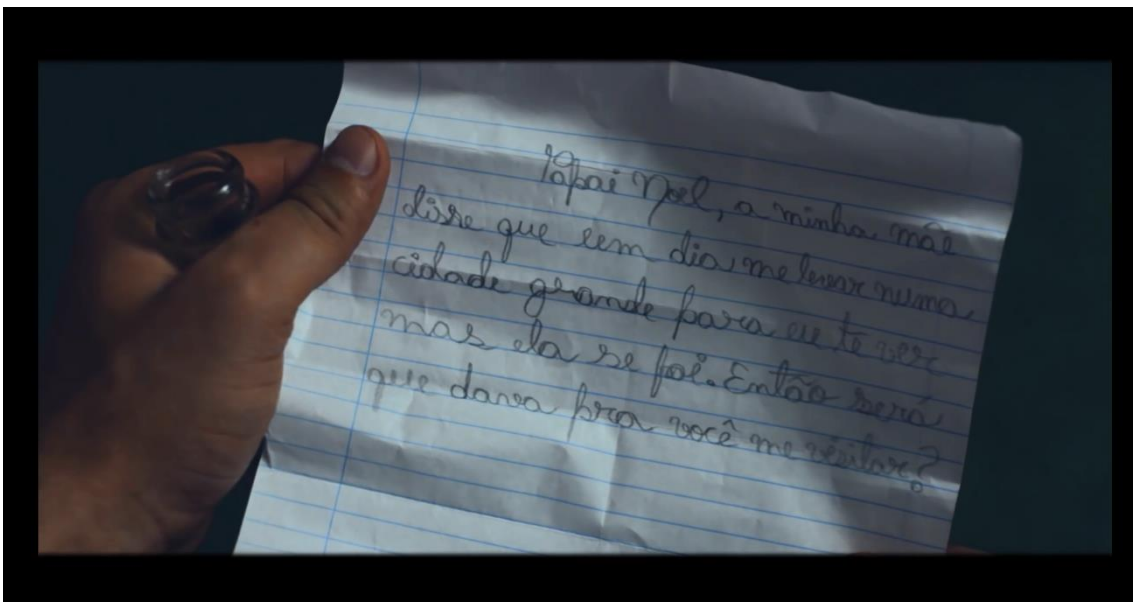 Papai Noel, a minha mãe
disse que um dia me levar numa
cidade grande para eu te ver
mas ela se foi. Então será
que dava pra você me visitar?